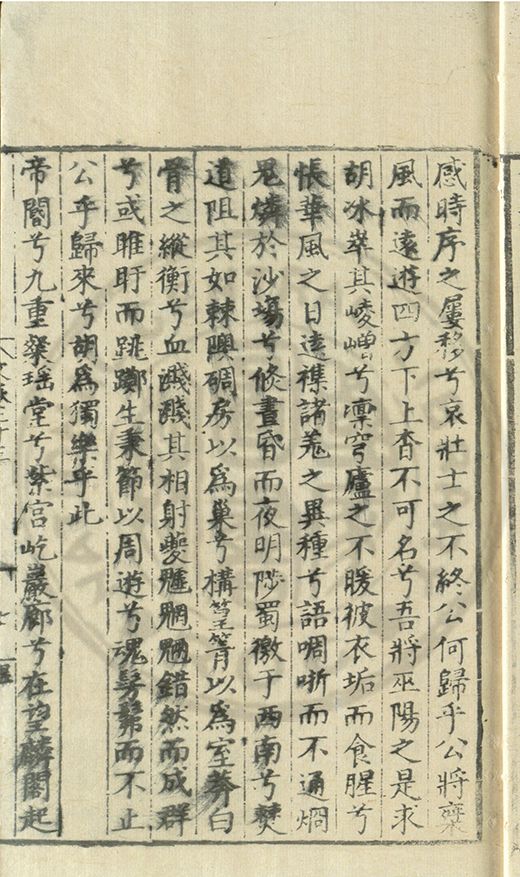 感時序之屢移兮哀壯士之不終公何歸乎公將藥
風而遠遊四方下上杳不可名兮吾將巫陽之是求
胡冰崒其崚嶒兮凛穹廬之不暖被衣垢而食腥兮
悵華風之日遠襍諸羗之異種兮語啁哳而不通烱
鬼燐於沙塲兮倏晝昏而夜明陟蜀徼于西南兮僰
道阻其如棘隩碉房以爲巢兮構篁箐以爲室莽白
骨之縱衡兮血濺濺其相射夔魖魍魎錯然而成群
兮或睢盱而跳躑生秉節以周遊兮魂髣髴而不止
公乎歸來兮胡爲獨樂乎此
帝閽兮九重粲瑶堂兮紫宫屹巖廊兮在望麟閣起